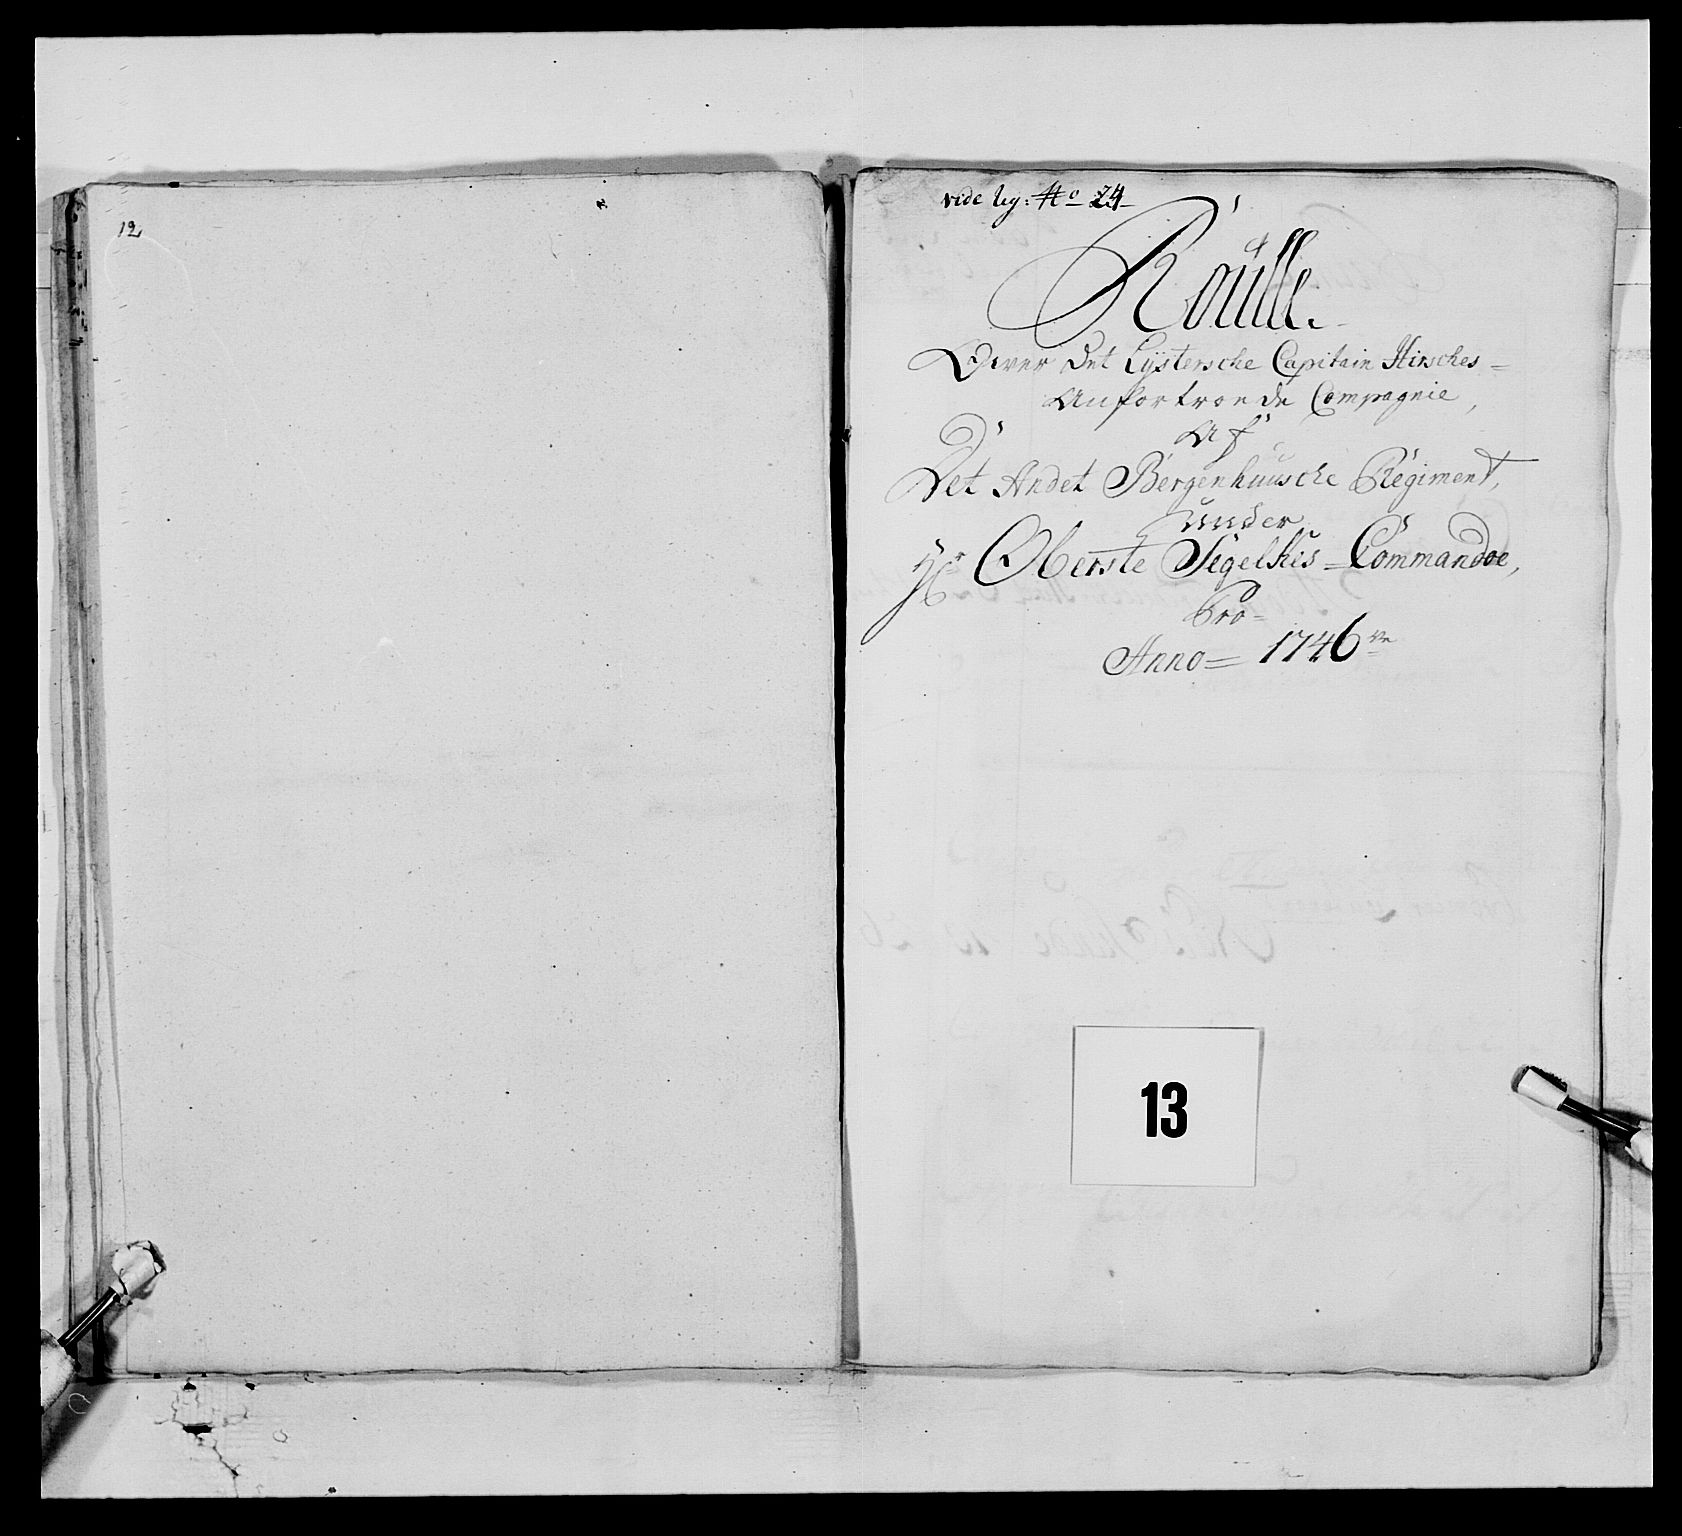 12
vide reg: No 24
Roulle.
Over Det Lÿstersche Capitain Hirsches=
Anfortroede Compagnie,
Af
Det Andet Bergenhuusche Regiment,
under
Hr Oberste Segelkes=Commandoe,
Pro=
Anno= 1746ve
13